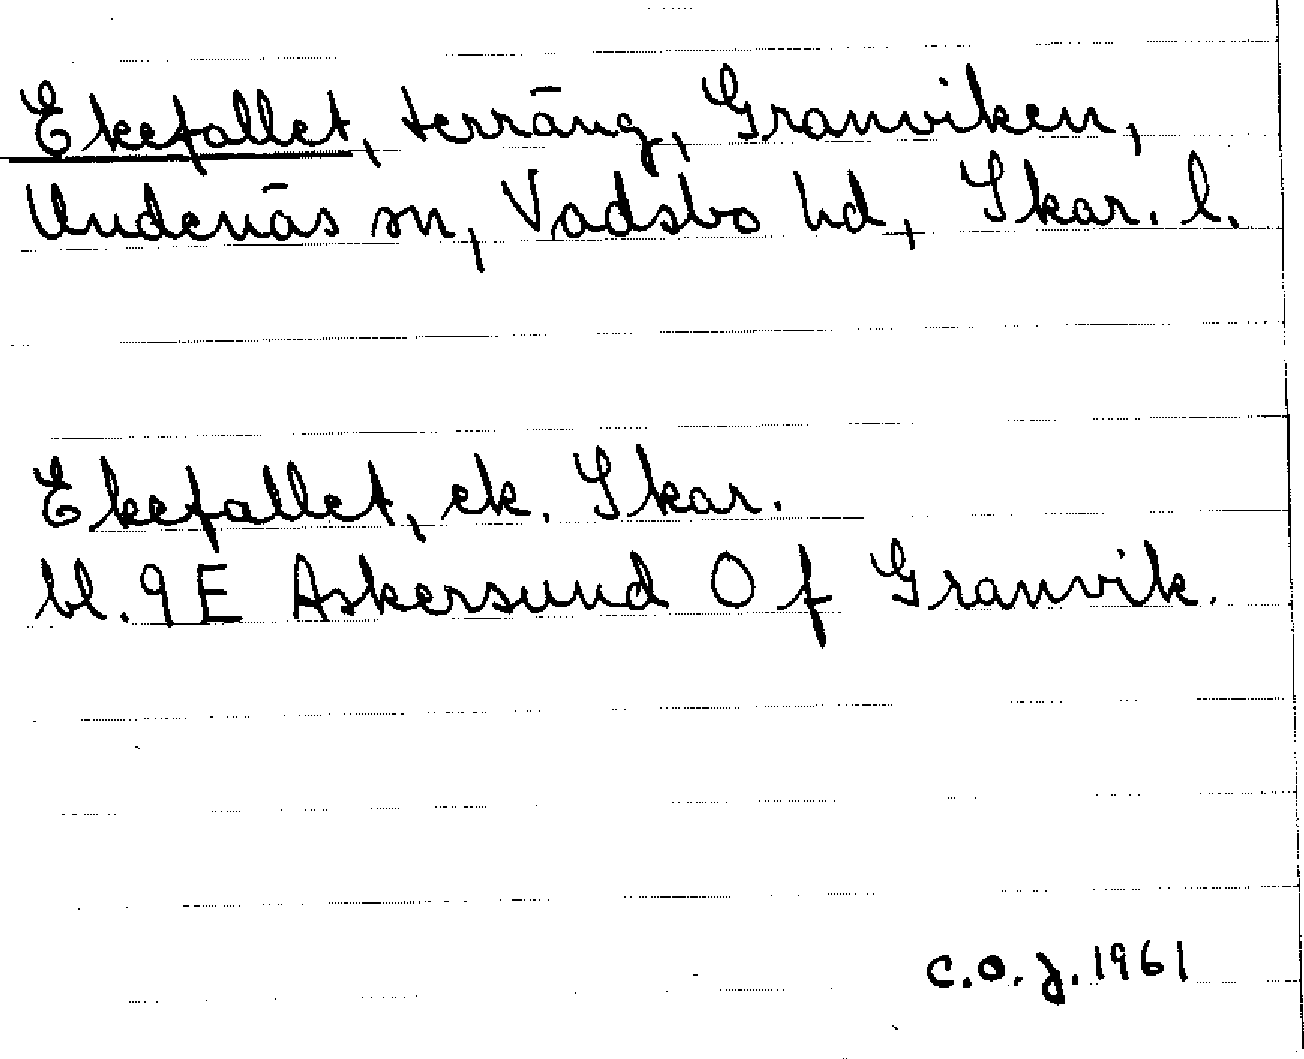 Ekefallet, terräng, Granviken,
Undenäs sn, Vadsbo hd, Skar. l.
Ekefallet, ek. Skar.
bl. 9E Askersund O f Granvik.
C.O.J. 1961